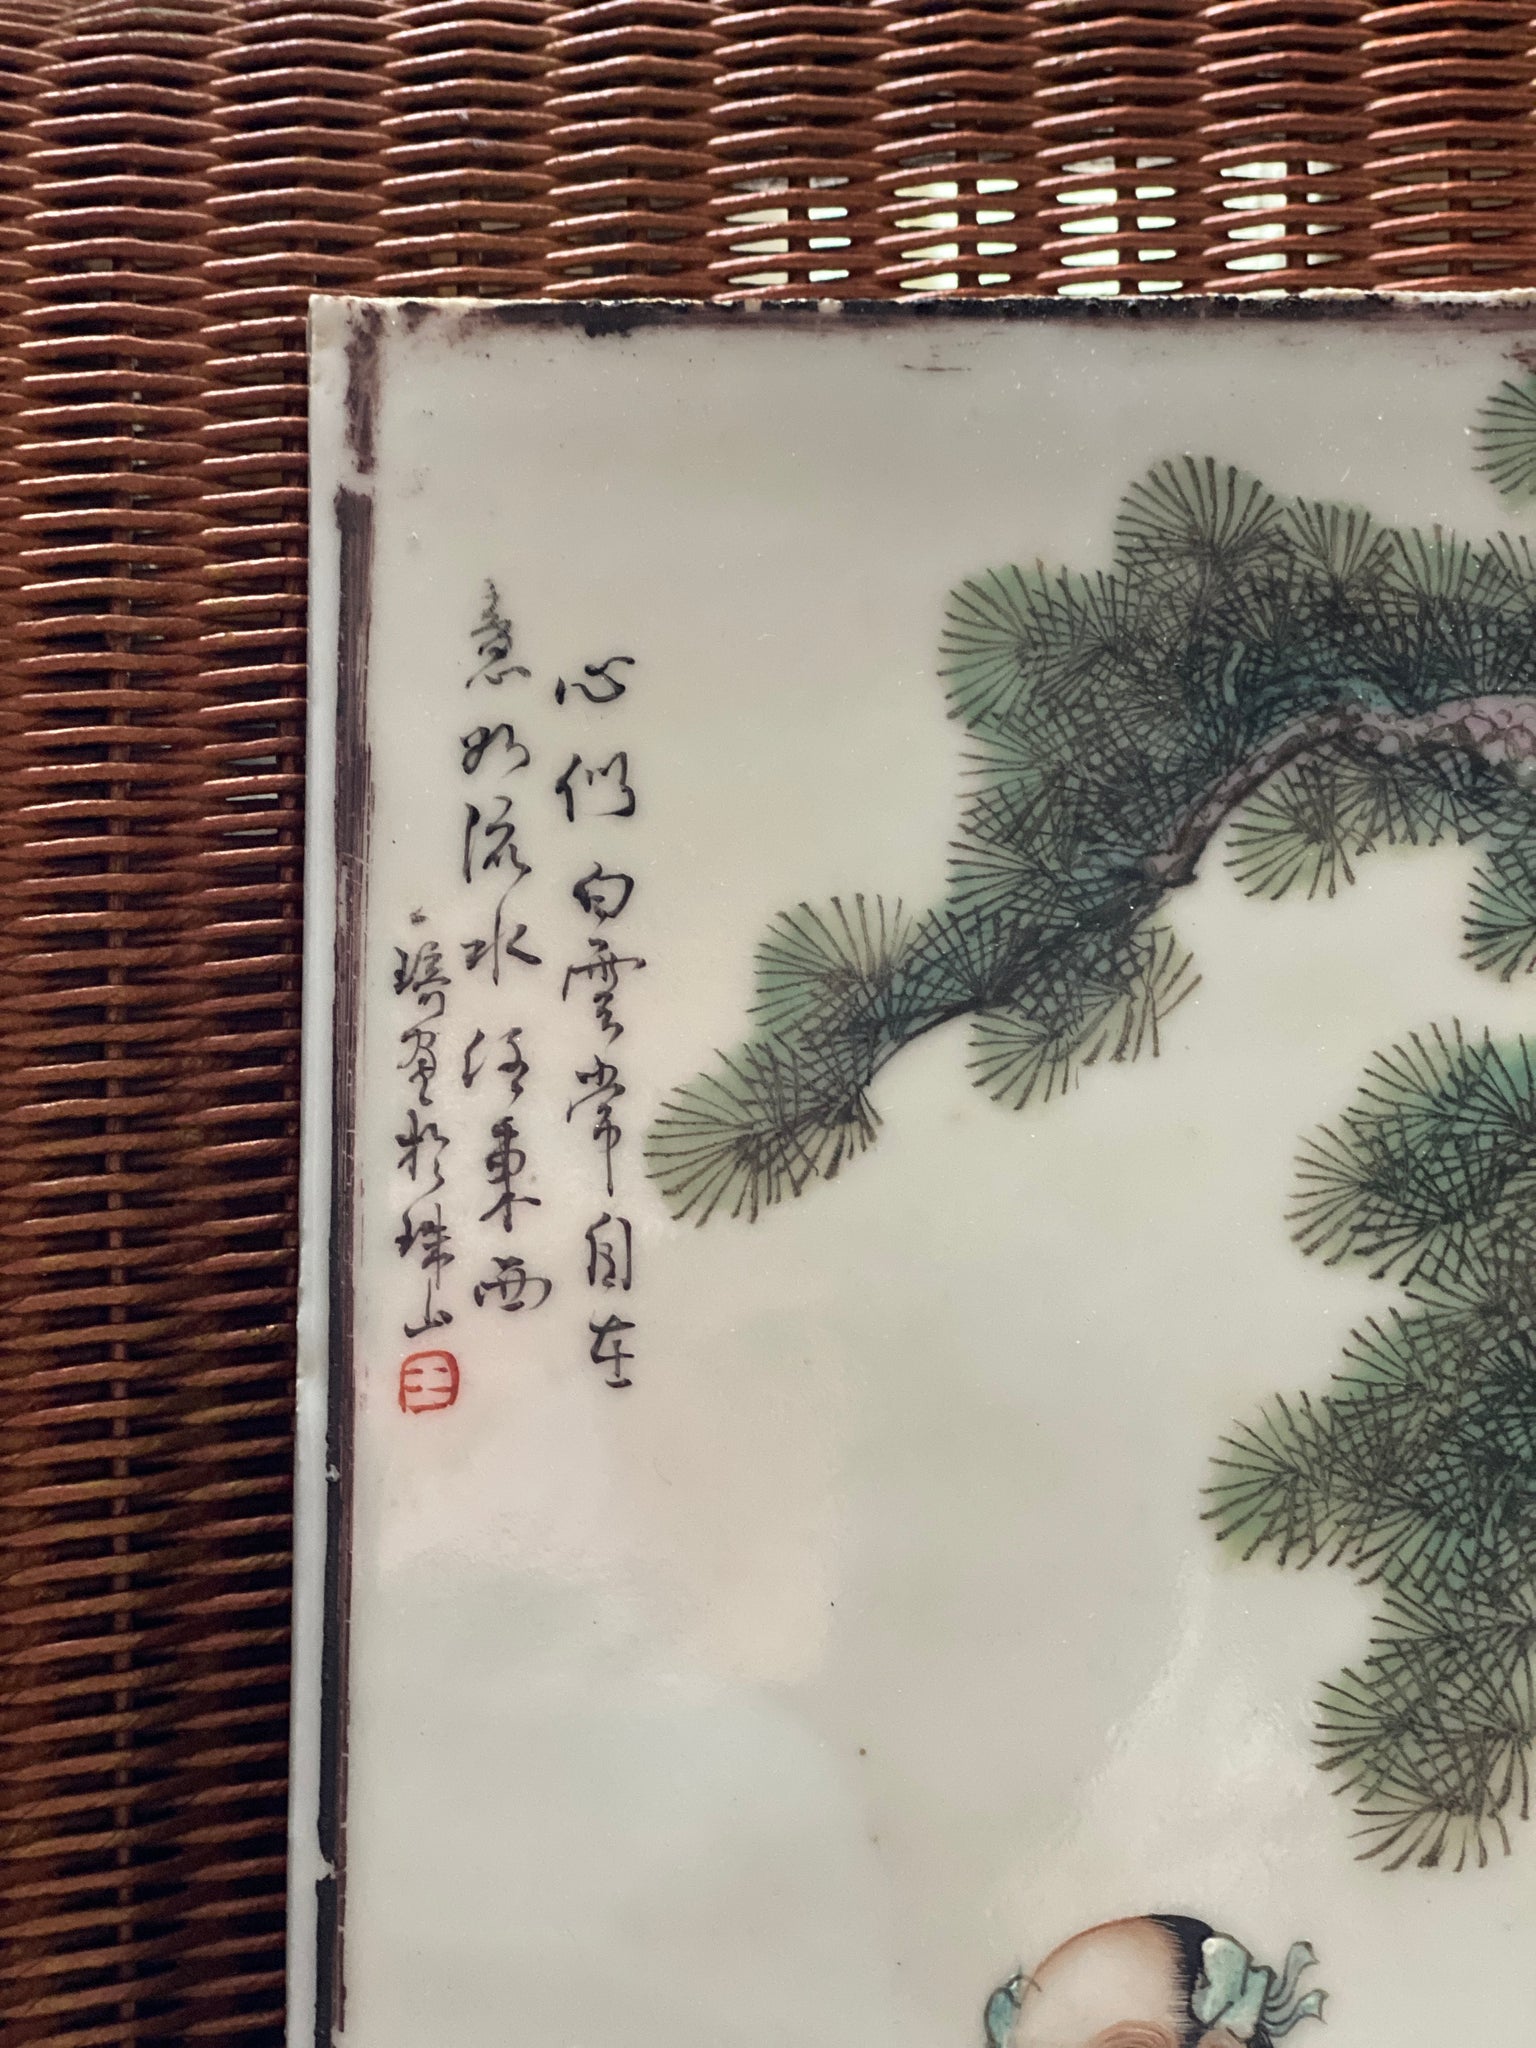 心似白雲常自在
意如流水任東西
琦畫於珠山